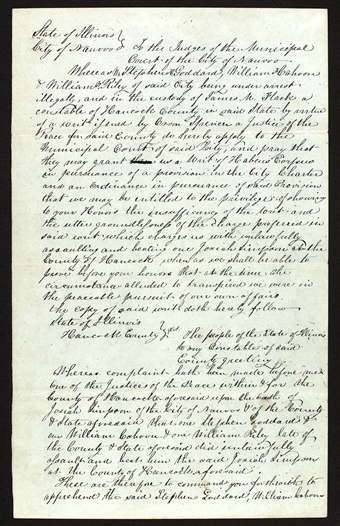 State of Illinois }
City of Nauvoo } To the Judges of the Municipal
Court of the City of Nauvoo
Whereas Stephen Goddard, William Cahoon
& William Riley of said City being under arrest
illegally, and in the custody of James M. Flack a
constable of Hancock County in said State by virtue
of a writ issued by Orson Spencer a Justice of the
Peace for said County do hereby apply to the
Municipal Court of said City, and pray that
they may grant us a Writ of Habeus Corpus
in pursuance of a provision in the City Charter
and an Ordinance in pursuance of said Provision
that we may be entitled to the privilege of showing
to your Honors the insufficiency of the writ and
the utter groundlessness of the charge preferred in
said writ which charges us with unlawfully
assaulting and beating one Josiah Simpson in the
County of Hancock, when as we shall be able to
prove before your honors that at the time the
circumstance alluded to transpired we were in
the peaceable pursuit of our own affairs.
The copy of said writ doth hereby follow
State of Illinois
Hancock County } The people of the State of Illinois
to any Constable of said
County greeting
Whereas complaint hath been made before me
One of the Justices of the Peace within & for the
County of Hancock aforesaid upon the oath of
Josiah Simpson of the City of Nauvoo & of the County
& State aforesaid that one Stephen Goddard &
one William Cahoon & one William Riley late of
the County & State aforesaid did unlawfully
assault and beat him the said Josiah Simpson
at the County of Hancock aforesaid.
These are therefor to command you forthwith to
apprehend the said Stephen Goddard, William Cahoon